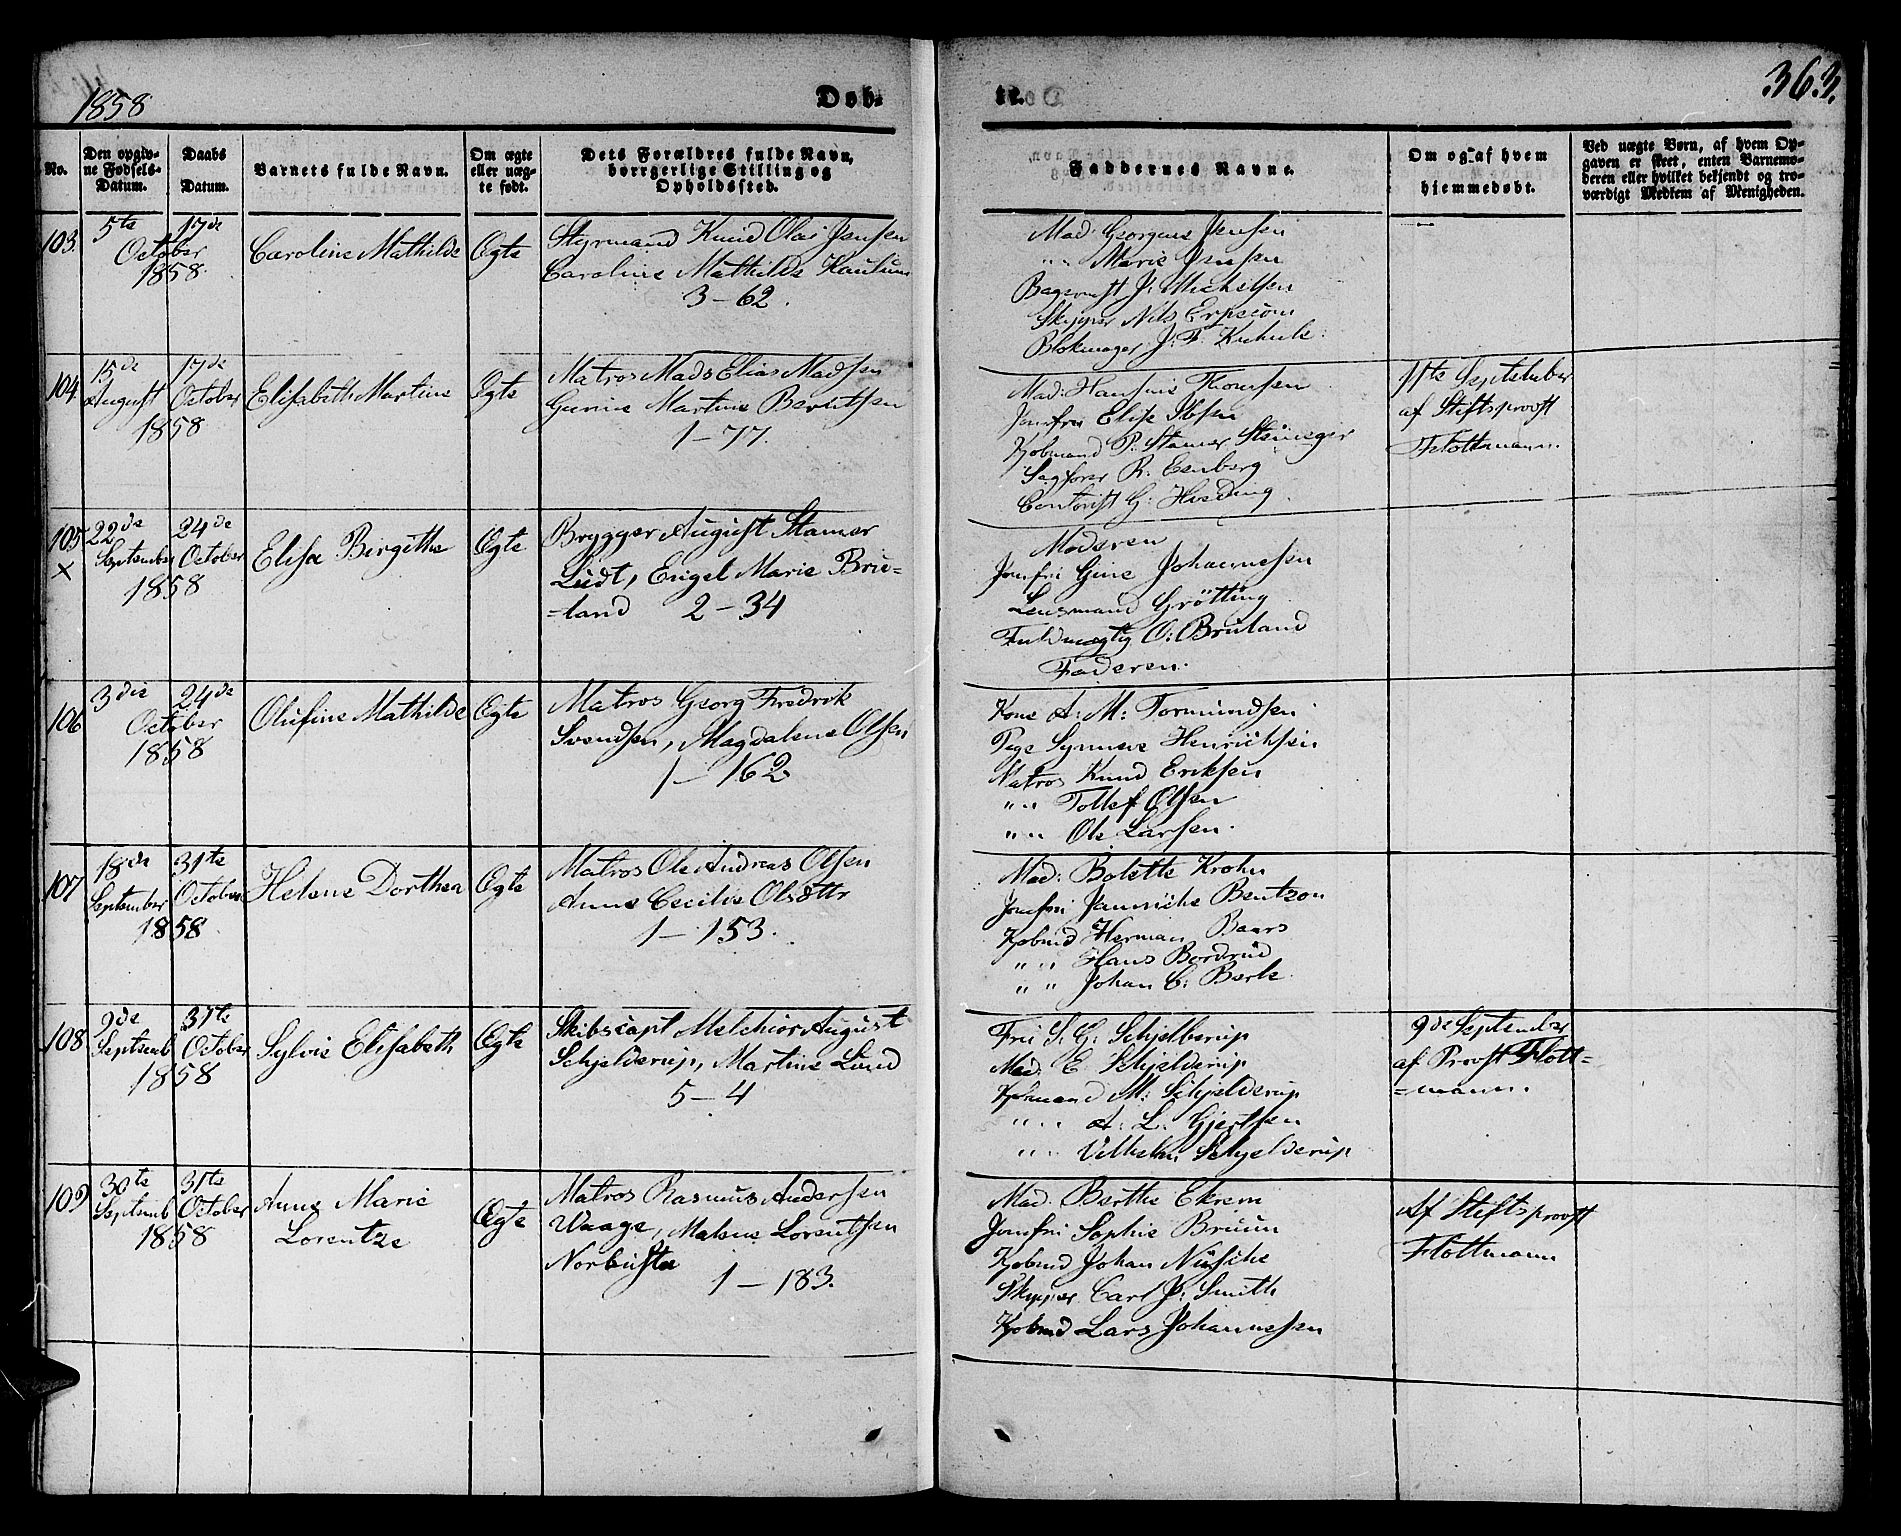 1858
Døb-
te.
363.
No.
Den opgiv-
ne Fødsels-
Datum.
Daabs
Datum.
Barnets fulde Navn.
Om ægte
eller uæg-
te født.
Dets Forældres fulde Navn,
borgerlige Stilling og
Opholdssted.
Faddernes Navne.
Om og af hvem
hjemmedøbt.
Ved uægte Børn, af hvem Op-
gaven er skeet, enten Barnemo-
deren eller hvilket bekjendt og tro-
værdigt Medlem af Menigheden.
103.
5te October 1858.
17de
Caroline Mathilde
Ægte
Styrmand Knud Olai Jensen
Caroline Mathilde
3-62.
Mad. Jensen
" " Marie Jensen
J. Michelsen
Skipper Nils
Blokmager J. F.
104
15de August 1858
17de October
Elisabeth Martine
Ægte
Matros Mads Elias Madsen
Gurine Martine Berntsen
1-77.
Mad: Hansine
Jomfru Elise Ibsen
Kjøbmand P. Stamer Steineger
Sagfører R. Egeberg
Contorist G: Hveding.
11te September
af Stiftsprovst
Flottmann.
105
×
22de September 1858
24de October
Elisa Birgitha
Ægte
Brygger August Stamer
Lüdt, Engel Marie Bru-
-land 2-34
Moderen
Jomfru Gine Johannesen
Lensmand Grötting
Fuldmægtig O: Bruland
Faderen.
106
3die October 1858
24de
Olufine Mathilde
Ægte
Matros Georg Fredrik
Svendsen, Magdalene Olsen
1-162
Kone A: M: Tormundsen
Pige Synneve Henrichsen
Matros Knud Eriksen
" " Tollef Olsen
" " Ole Larsen.
107
18de September 1858
31te October
Helene Dorthea
Ægte
Matros Ole Andreas Olsen
Anne Cecilie Olsdttr
1-153.
Mad: Bolette Krohn
Jomfru Janniche Bentzon
Kjøbmd Herman Baars
" " Hans Bordrüd
" " Johan C: Berle
108
9de Septemb 1858
31te October
Sylvie Elisabeth
Ægte
Skibscapt Melchior August
Schjelderup, Martine Lund
5-4
Fru S. G. Schjelderup
Mad. E. Schjelderup
Kjøbmand M: Schjelderup
" " A. L. Gjertsen
" " Vilhelm Schjelderup
9de September
af Provst Flott=
=mann.
109
30te Septemb 1858
31te October
Anne Marie
Lorentze
Ægte
Matros Rasmus Andersen
Waage, Malene Lorentsen
Norbusta
1-183.
Mad. Berthe Ekrem
Jomfru Sophie Bruun
Kjøbmd Johan Nitsche
Skipper Carl J. Smith
Kjøbmd Lars Johannessen
Af Stiftsprovst
Flottmann